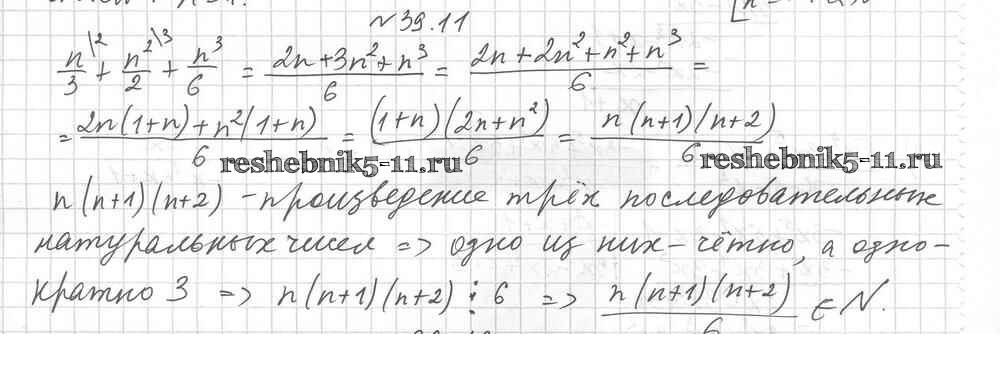 №39.11
n/3 \2 + n²/2 \3 + n³/6 = (2n+3n²+n³)/6 = (2n+2n²+n²+n³)/6 =
= (2n(1+n)+n²(1+n))/6 = ((1+n)(2n+n²))/6 = (n(n+1)(n+2))/6
reshebnik5-11.ru reshebnik5-11.ru
n(n+1)(n+2) - произведение трёх последовательных
натуральных чисел => одно из них - чётно, а одно-
кратно 3 => n(n+1)(n+2) ⋮ 6 => (n(n+1)(n+2))/6 ∈ N.